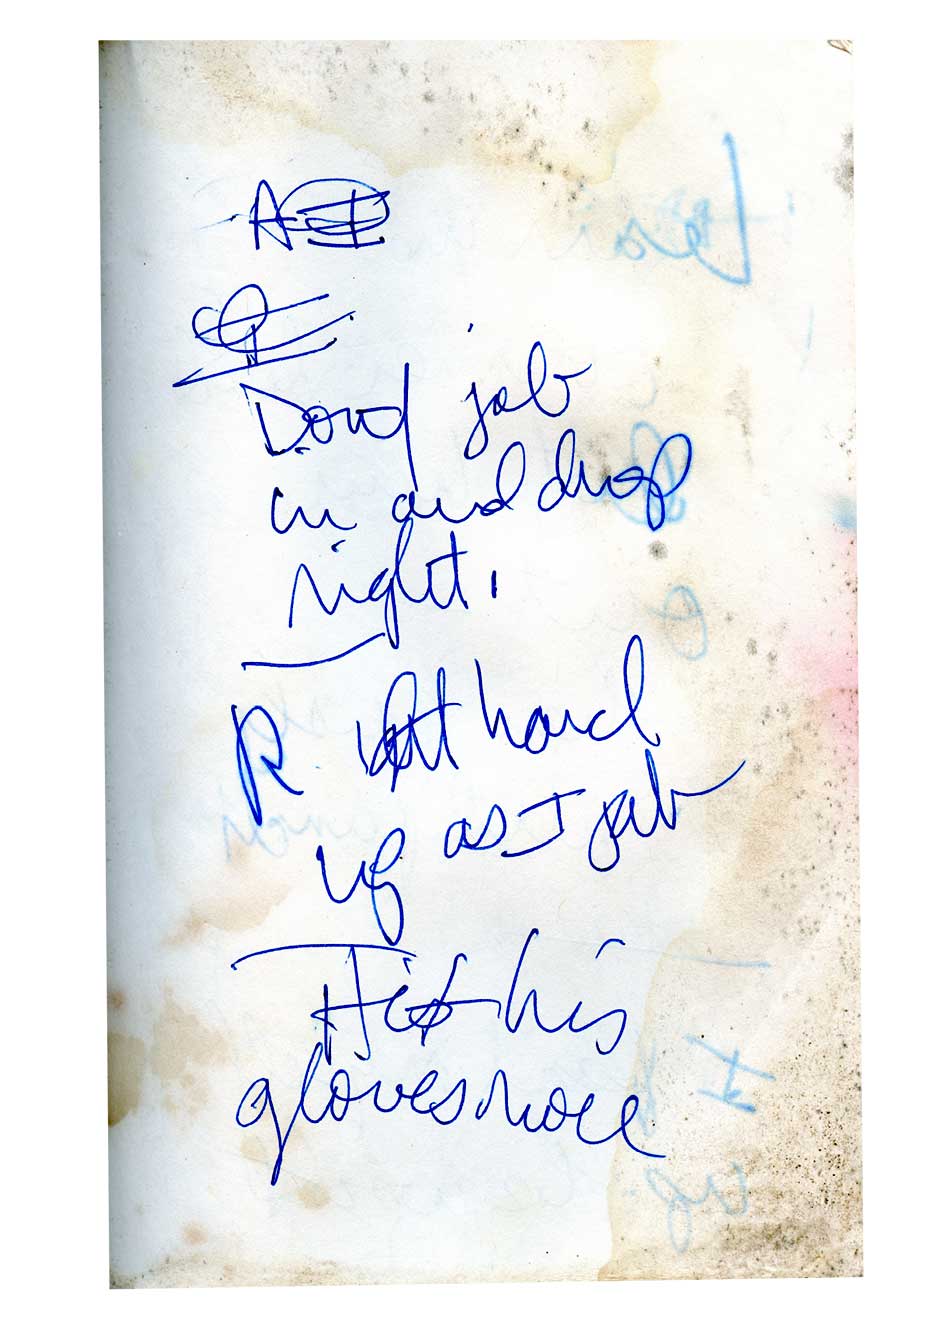 Dont jab
in and drop
right.
R. left hand
up as I jab
Hit his
gloves more